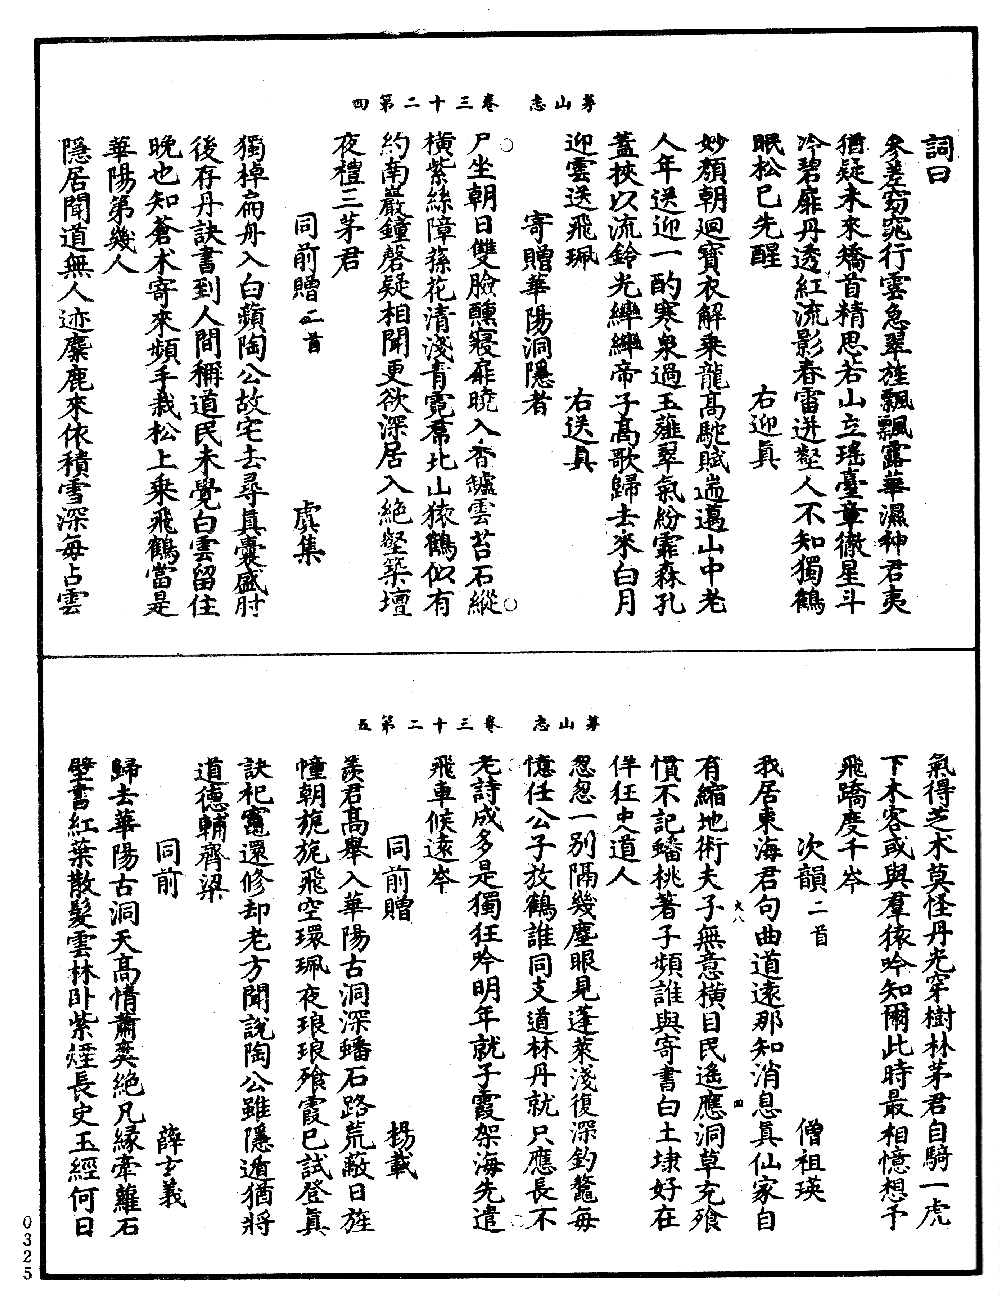 茅山志　卷三十二第四
詞曰
參差窈窕行雲急翠旌飄飄露華濕神君夷
猶疑未來矯首精思若山立瑤臺章徹星斗
冷碧扉丹透紅流影春雷迸壑人不知獨鶴
眠松巳先醒　　右迎眞
妙顏朝迴寶衣解乗龍高駝賦遄邁山中老
人年送迎一酌寒泉過玉薤翠氣紛霏森孔
蓋挾以流鈴光繂繂帝子高歌歸去來白月
迎雲送飛珮　　右送眞
寄贈華陽洞隱者
尸坐朝日雙臉醺寢扉曉入香鑪雲苔石縱
橫紫絲障蓀花清淺青霓帬北山猿鶴似有
約南巖鐘磬疑相聞更欲深居入絶壑築壇
夜禮三茅君
同前贈二首　　虞集
獨棹扁舟入白蘋陶公故宅去尋眞囊盛肘
後存丹訣書到人間稱道民未覺白雲留住
晚也知蒼朮寄來頻手栽松上乗飛鶴當是
華陽第幾人
隱居聞道無人迹麋鹿來依積雪深每占雲
茅山志　卷三十二第五
氣得芝朮莫怪丹光穿樹林茅君自騎一虎
下木客或與羣猿吟知爾此時最相憶想予
飛蹻度千岑
次韻二首　　僧祖瑛
我居東海君句曲道遠那知消息眞仙家自
有縮地術夫子無意橫目民遙應洞草充飱
慣不記蟠桃著子頻誰與寄書白土埭好在
佯狂史道人
忽忽一別隔幾塵眼見蓬萊淺復深釣鼇每
憶任公子放鶴誰同支道林丹就只應長不
老詩成多是獨狂吟明年就子霞架海先遣
飛車候遠岑
同前贈　　楊載
羨君高舉入華陽古洞深蟠石路荒蔽日旌
幢朝旎旎飛空環珮夜琅琅飱霞巳試登眞
訣祀竈還修却老方聞説陶公雖隱遁猶將
道德輔齊梁
同前　　薛玄義
歸去華陽古洞天高情蕭爽絶凡縁牽蘿石
壁書紅葉散髮雲林卧紫煙長史玉經何日
大八
四
0325